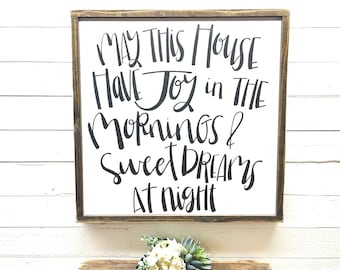 MAY THIS HOUSE
HAVE JOY in THE
MORNINGS &
SWEET DREAMS
AT nigHT